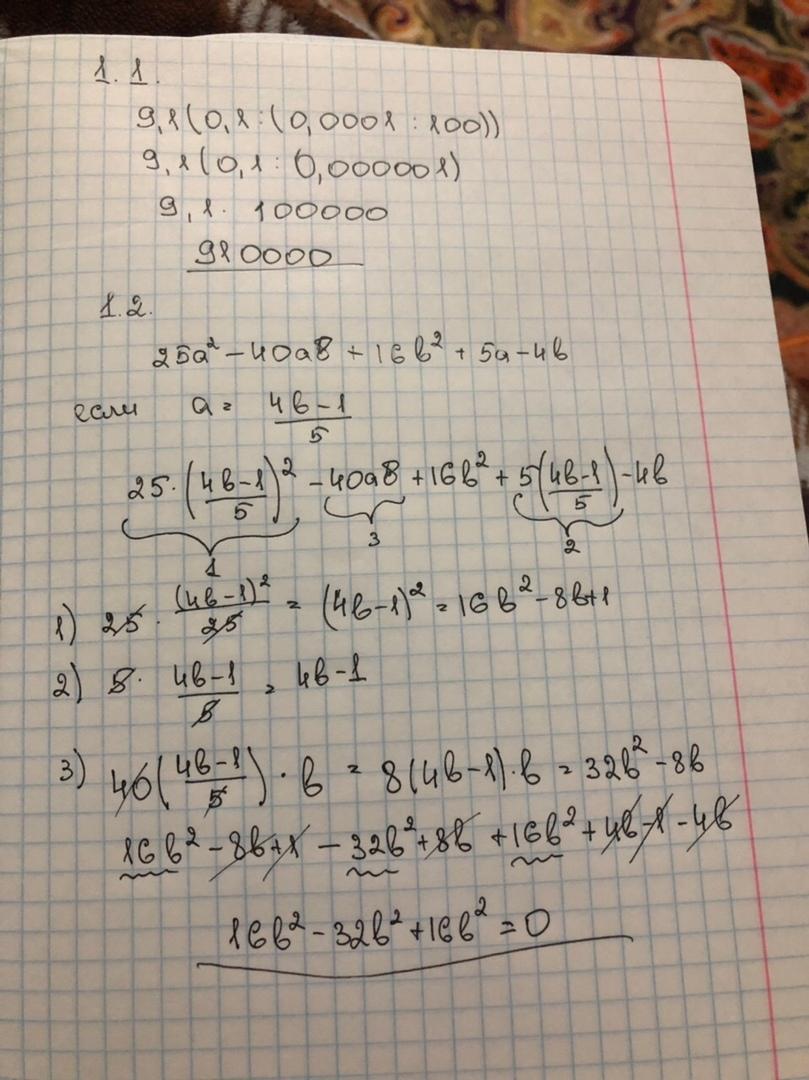 1. 1.
9,1(0,1:(0,0001:100))
9,1(0,1:0,000001)
9,1· 100000
910000
1.2.
25a² - 40ab + 16b² + 5a - 4b
если a = (4b-1)/5
25·((4b-1)/5)² - 40ab + 16b² + 5((4b-1)/5) - 4b
1 3 2
1) 25 · (4b-1)²/25 = (4b-1)² = 16b² - 8b+1
2) 5· (4b-1)/5 = 4b-1
3) 40((4b-1)/5)·b = 8(4b-1)·b = 32b² - 8b
16b² - 8b+1 - 32b² + 8b + 16b² + 4b-1 - 4b
16b² - 32b² + 16b² = 0